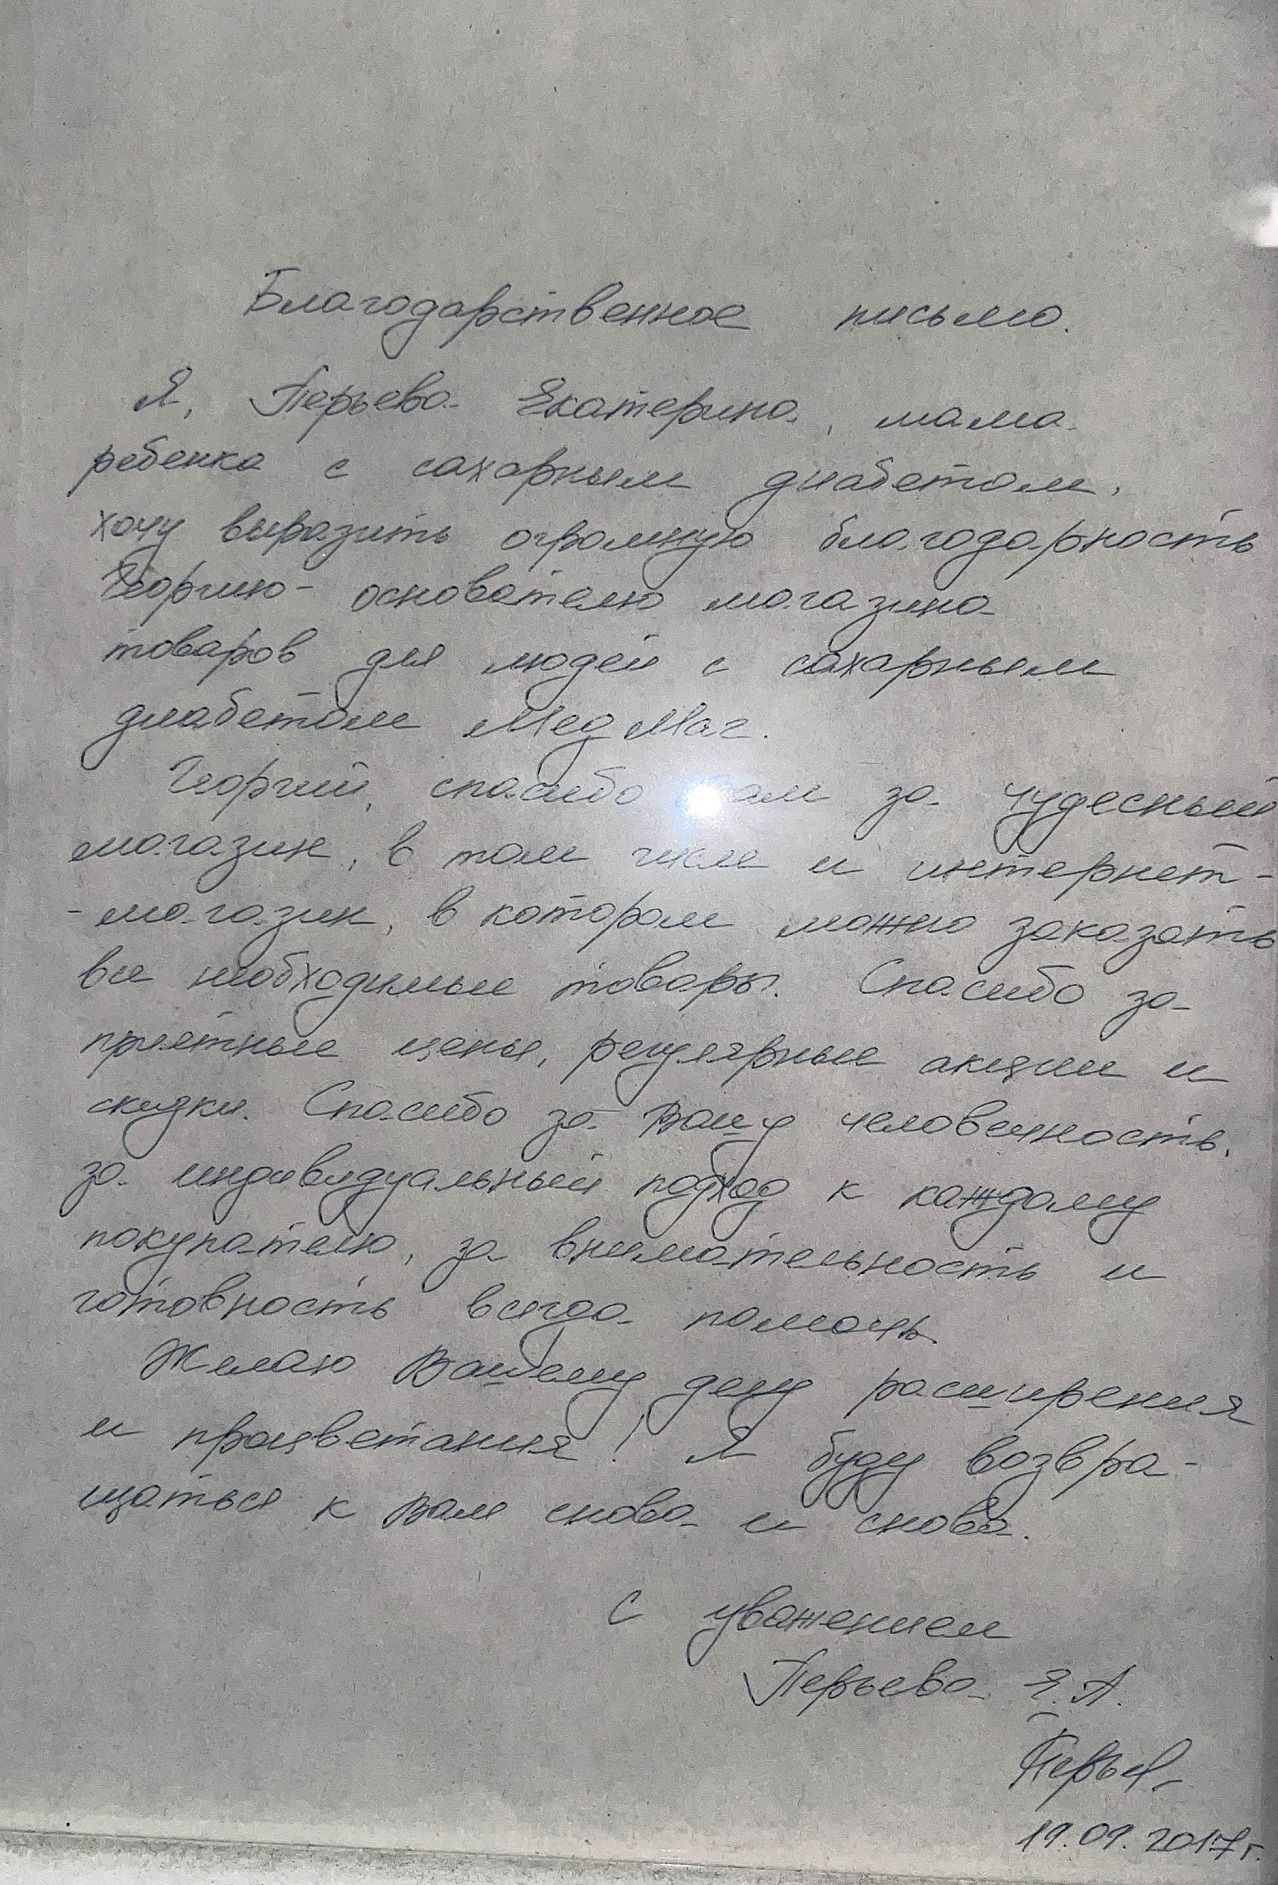 Благодарственное письмо.
Я, Перьева Екатерина, мама
ребенка с сахарным диабетом,
хочу выразить огромную благодарность
Георгию - основателю магазина
товаров для людей с сахарным
диабетом МедМаг.
Георгий, спасибо Вам за чудесный
магазин, в том числе и интернет-
-магазин, в котором можно заказать
все необходимые товары. Спасибо за
приятные цены, регулярные акции и
скидки. Спасибо за Вашу человечность,
за индивидуальный подход к каждому
покупателю, за внимательность и
готовность всегда помочь.
Желаю Вашему делу расширения
и процветания! Я буду возвра-
щаться к Вам снова и снова.
С уважением
Перьева Е.А.
19.09.2017г.